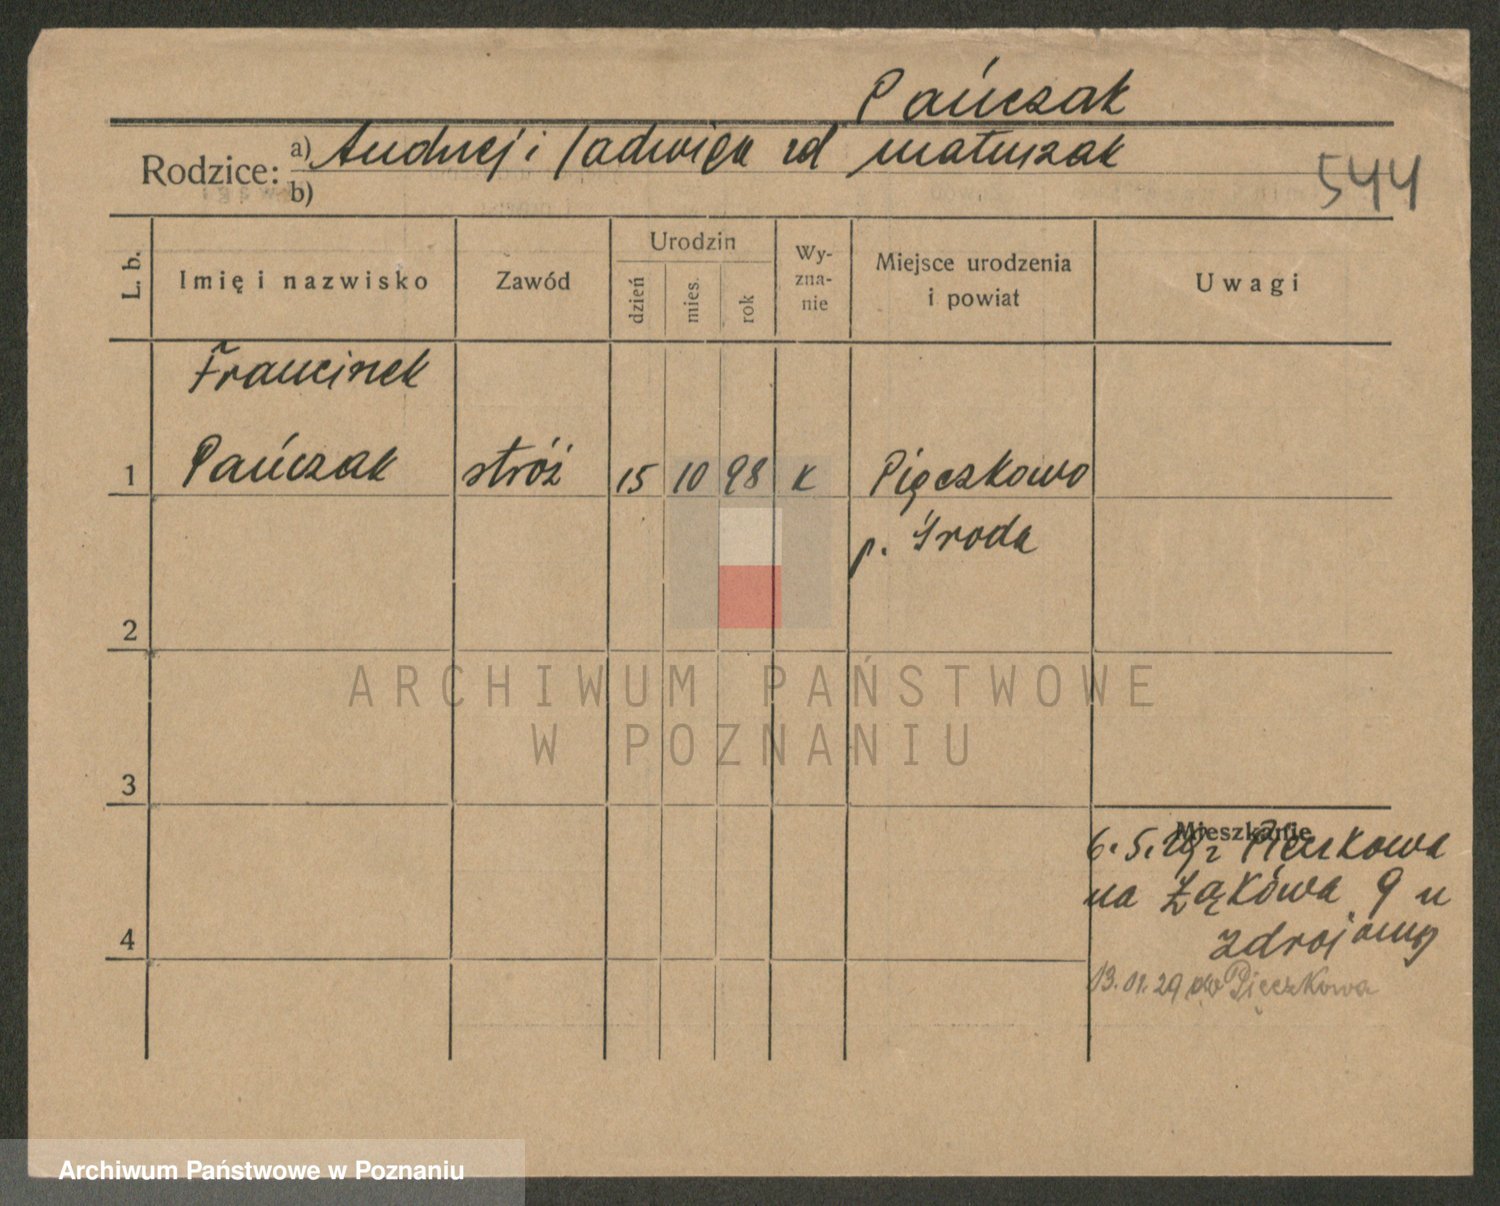 Pańczak
Rodzice: a) Andrzej i Jadwiga zd Matuszak
b)
544
L. b.
Imię i nazwisko
Zawód
Urodzin
dzień
mies.
rok
Wy-
zna-
nie
Miejsce urodzenia
i powiat
Uwagi
Franciszek
1 Pańczak stróż 15 10 98 K Pięczkowo
p. Środa
2
ARCHIWUM PAŃSTWOWE
W POZNANIU
3
Mieszkanie
6. 5. z Pięczkowa
na Żąkówa 9 u
4
13.11.29 do Pięczkowa
Archiwum Państwowe w Poznaniu